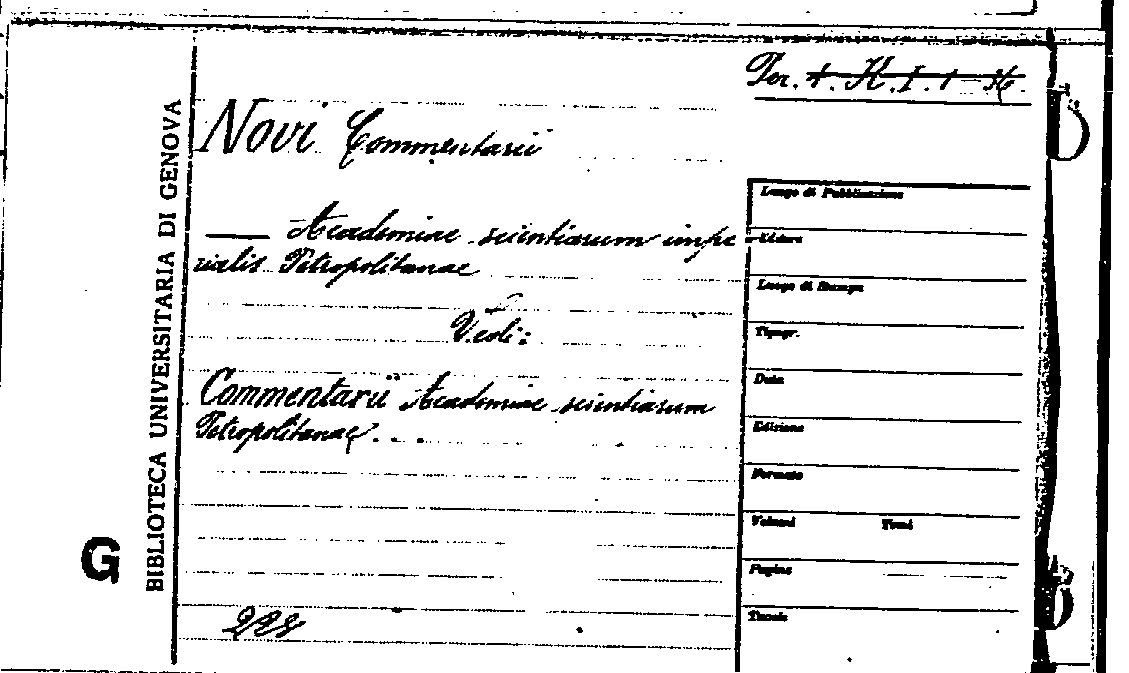 Per. 4. K. I. 1-36
Novi Commentarii
— Academiae scientiarum impe
rialis Petropolitanae
Vedi:
Commentarii Academiae scientiarum
Petropolitanae . . .
228
G
BIBLIOTECA UNIVERSITARIA DI GENOVA
Luogo di Pubblicazione
Editore
Luogo di Stampa
Tipogr.
Data
Edizione
Formato
Volumi Tomi
Pagine
Tavole